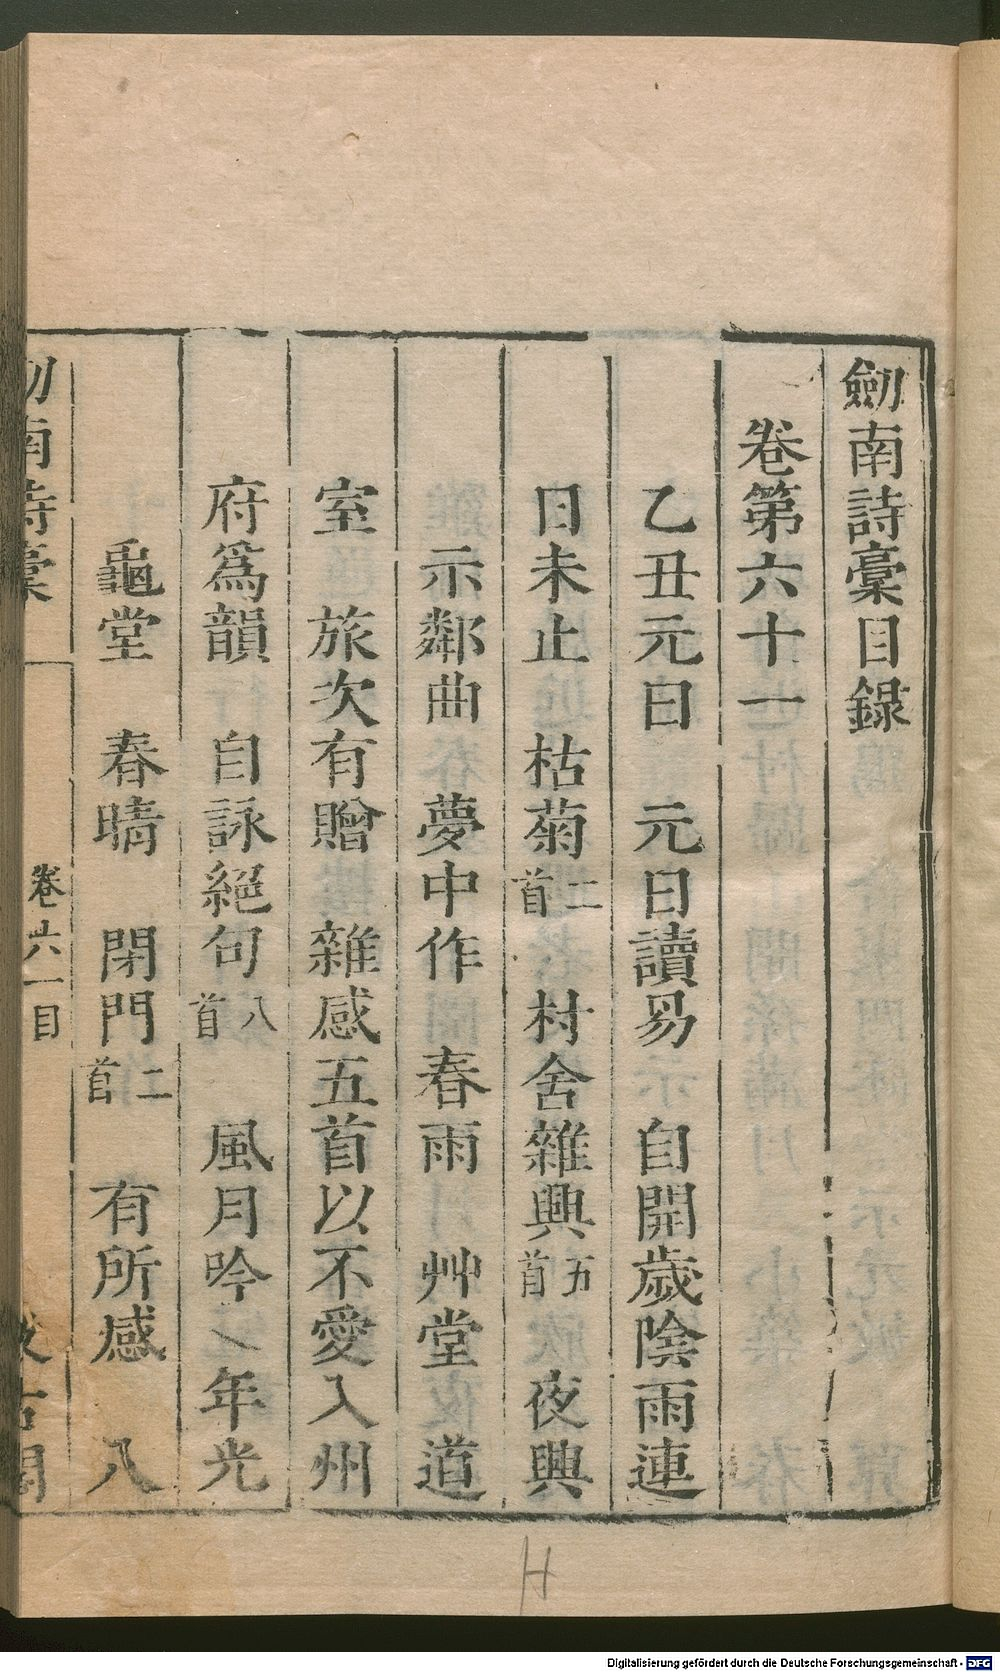 劒南詩稾目録
卷第六十一
乙丑元日　元日讀易　自開歲陰雨連
日未止　枯菊二首　村舍雜興五首　夜興
示鄰曲　夢中作　春雨　艸堂　道
室　旅次有贈　雜感五首以不愛入州
府爲韻　自詠絕句八首　風月吟　年光
龜堂　春晴　閉門二首　有所感　八
南詩稾　卷六一目　古閣
H
Digitalisierung gefördert durch die Deutsche Forschungsgemeinschaft - DFG